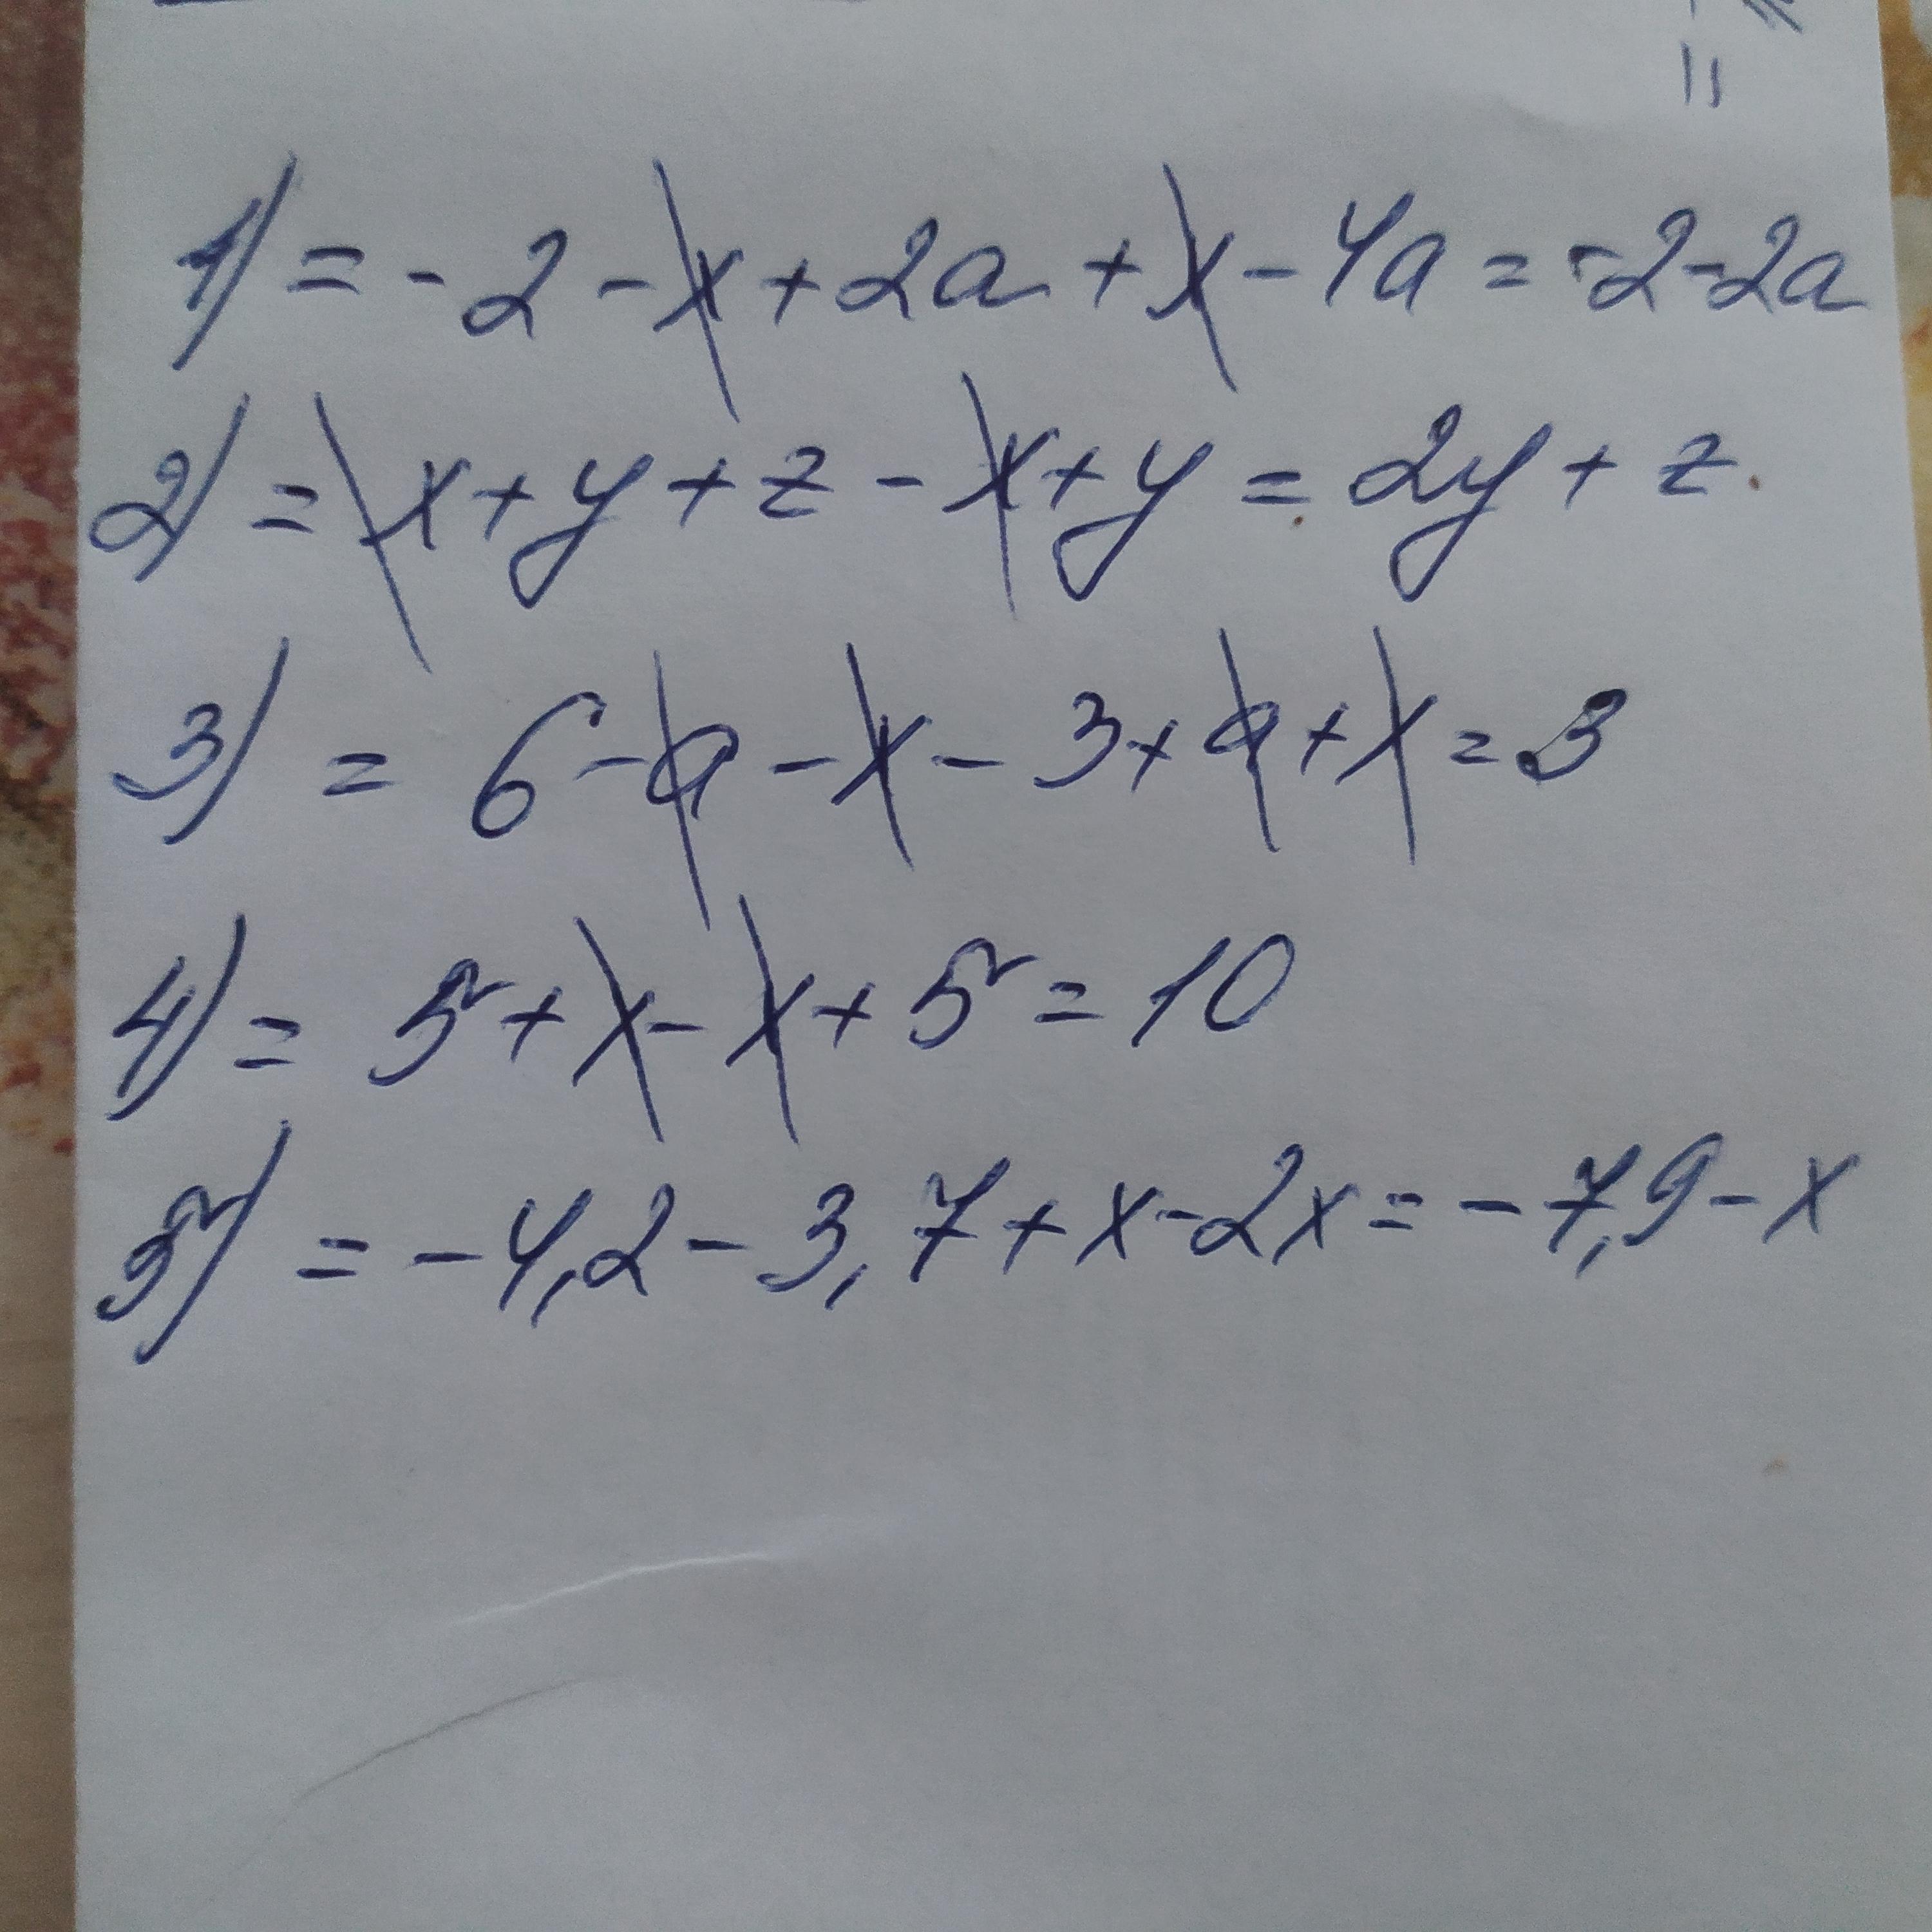 1) = - 2 - x + 2a + x - 4a = -2-2a
2) = x + y + z - x + y = 2y + z.
3) = 6 - a - x - 3 + a + x = 3
4) = 5 + x - x + 5 = 10
5) = - 4,2 - 3,7 + x - 2x = - 7,9 - x